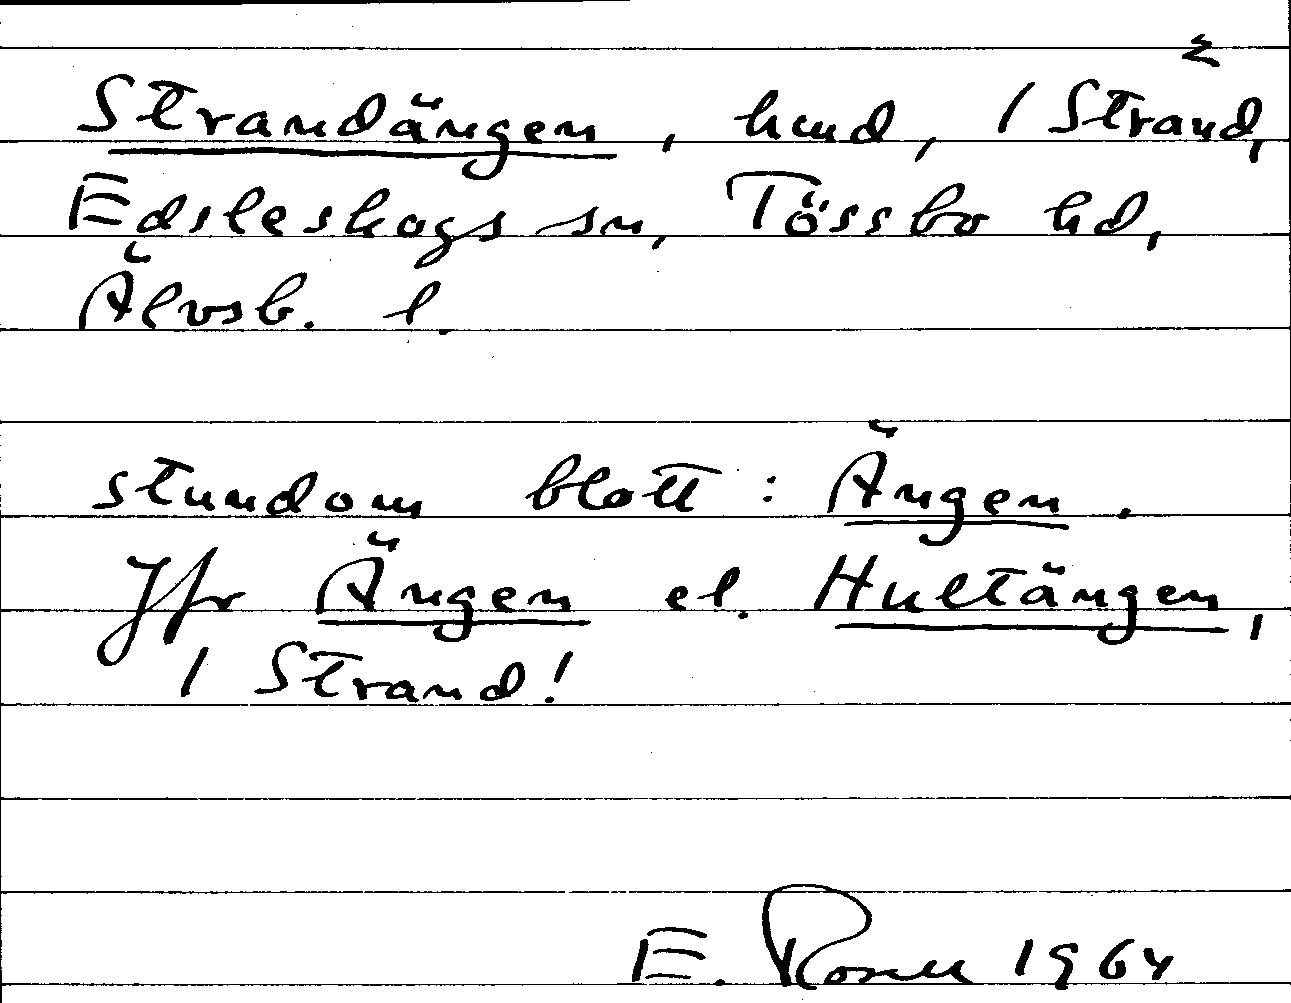 Strandängen, hmd, 1 Strand,
Edsleskogs sn, Tössbo hd,
Älvsb. l.
stundom blott: Ängen.
Jfr Ängen el. Hultängen,
1 Strand!
E. Rosell 1964